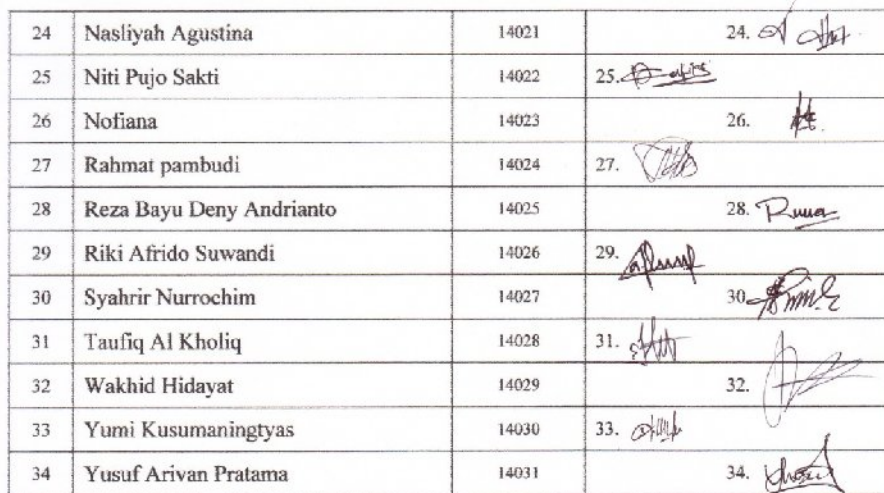 24 Nasliyah Agustina 14021 24.
25 Niti Pujo Sakti 14022 25.
26 Nofiana 14023 26.
27 Rahmat pambudi 14024 27.
28 Reza Bayu Deny Andrianto 14025 28.
29 Riki Afrido Suwandi 14026 29.
30 Syahrir Nurrochim 14027 30.
31 Taufiq Al Kholiq 14028 31.
32 Wakhid Hidayat 14029 32.
33 Yumi Kusumaningtyas 14030 33.
34 Yusuf Arivan Pratama 14031 34.